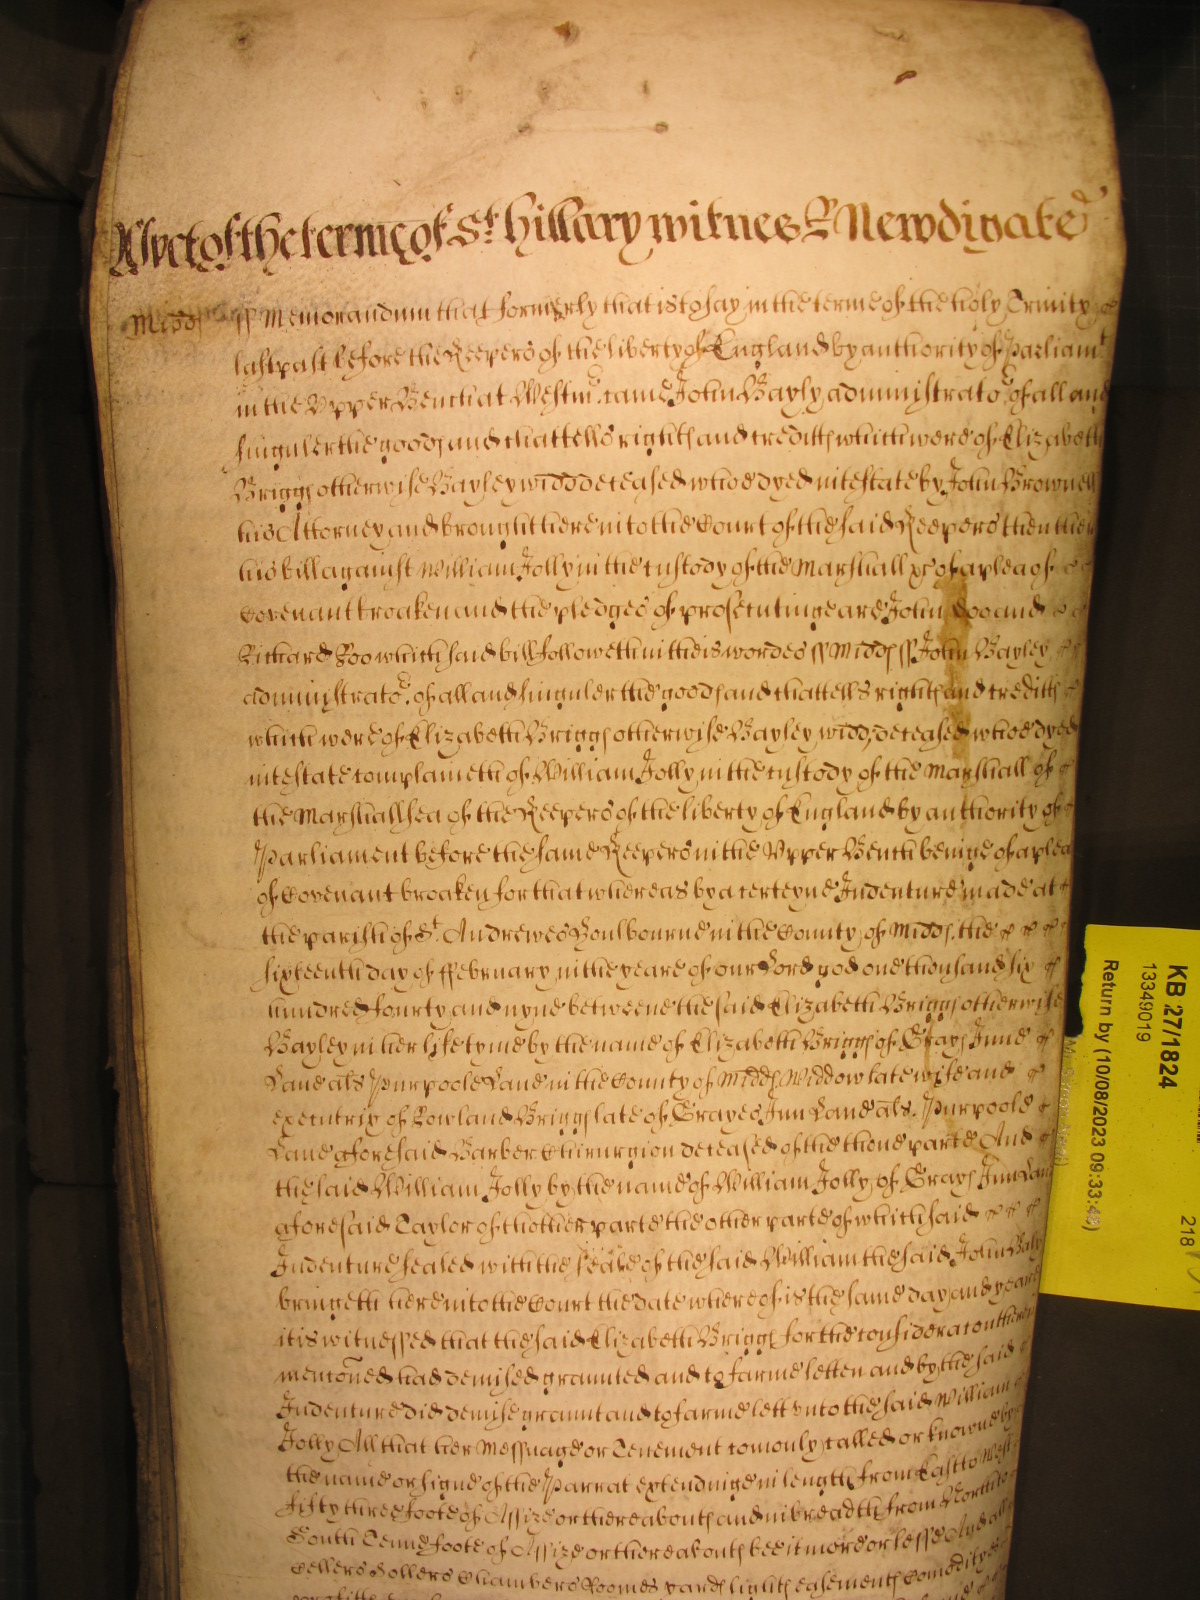 Yet of the terme of St. Hillary witnes R Newdigate
Midds ss Memorandum that formerly that is to say in the terme of the holy Trinity
last past before the Keepers of the liberty of England by authority of Parliamt
in the Vpper Bench at Westmr. came John Bayly administrator. of all and
singuler the goods and chattells rights and creditts which were of Elizabeth
Briggs otherwise Bayley widd deceased whoe dyed intestate by John Brownell
his Attorney and brought here into the Court of the said Keepers then there
his bill against William Jolly in the custody of the Marshall &c of a plea of
Covenant broaken and the pledges of prosecutinge are John Doo and
Richard Roo which said bill followeth in theis wordes ss Midds ss John Bayley
administrator. of all and singuler the goods and chattells rights and creditts
which were of Elizabeth Briggs otherwise Bayley widd, deceased whoe dyed
intestate complaineth of William Jolly in the custody of the Marshall of
the Marshallsea of the Keepers of the liberty of England by authority of
Parliament before the same Keepers in the Vpper Bench beinge of a plea
of Covenant broaken for that whereas by a certeyne Indenture made at
the parish of St. Andrewes Houlbourne in the County of Midds. the
sixteenth day of ffebruary in the yeare of our Lord god one thousand six
hundred fourty and nyne betweene the said Elizabeth Briggs otherwise
Bayley in her life tyme by the name of Elizabeth Briggs of Grays Inne
Lane als Purpoole Lane in the County of Midds Widdow late wife and
executrix of Rowland Briggs late of Grayes Inn Lane als. Purpoole
Lane aforesaid Barber Chirurgion deceased of the thone parte And
the said William Jolly by the name of William Jolly of Grays Inn Lane
aforesaid Taylor of thother parte the other parte of which said
Indenture sealed with the seale of the said William the said John Bayly
bringeth here into the Court the date whereof is the same day and yeare
it is witnessed that the said Elizabeth Briggs for the consideracon therein
menconed had demised graunted and to farme letten and by the said
Indenture did demise graunt and to farme lett vnto the said William
Jolly All that her Messuage or Tenement comonly called or knowne by
the name or signe of the Parrat extendinge in length from East to West
fifty three foote of Assize or thereabouts and in breadth from North to
South Tenne foote of Assize or thereabouts bee it more or lesse And all
Cellers Sollers Chambers Roomes yards lights easements Comodityes
KB 27/1824
13349019
Return by (10/08/2023 09:33:48)
218